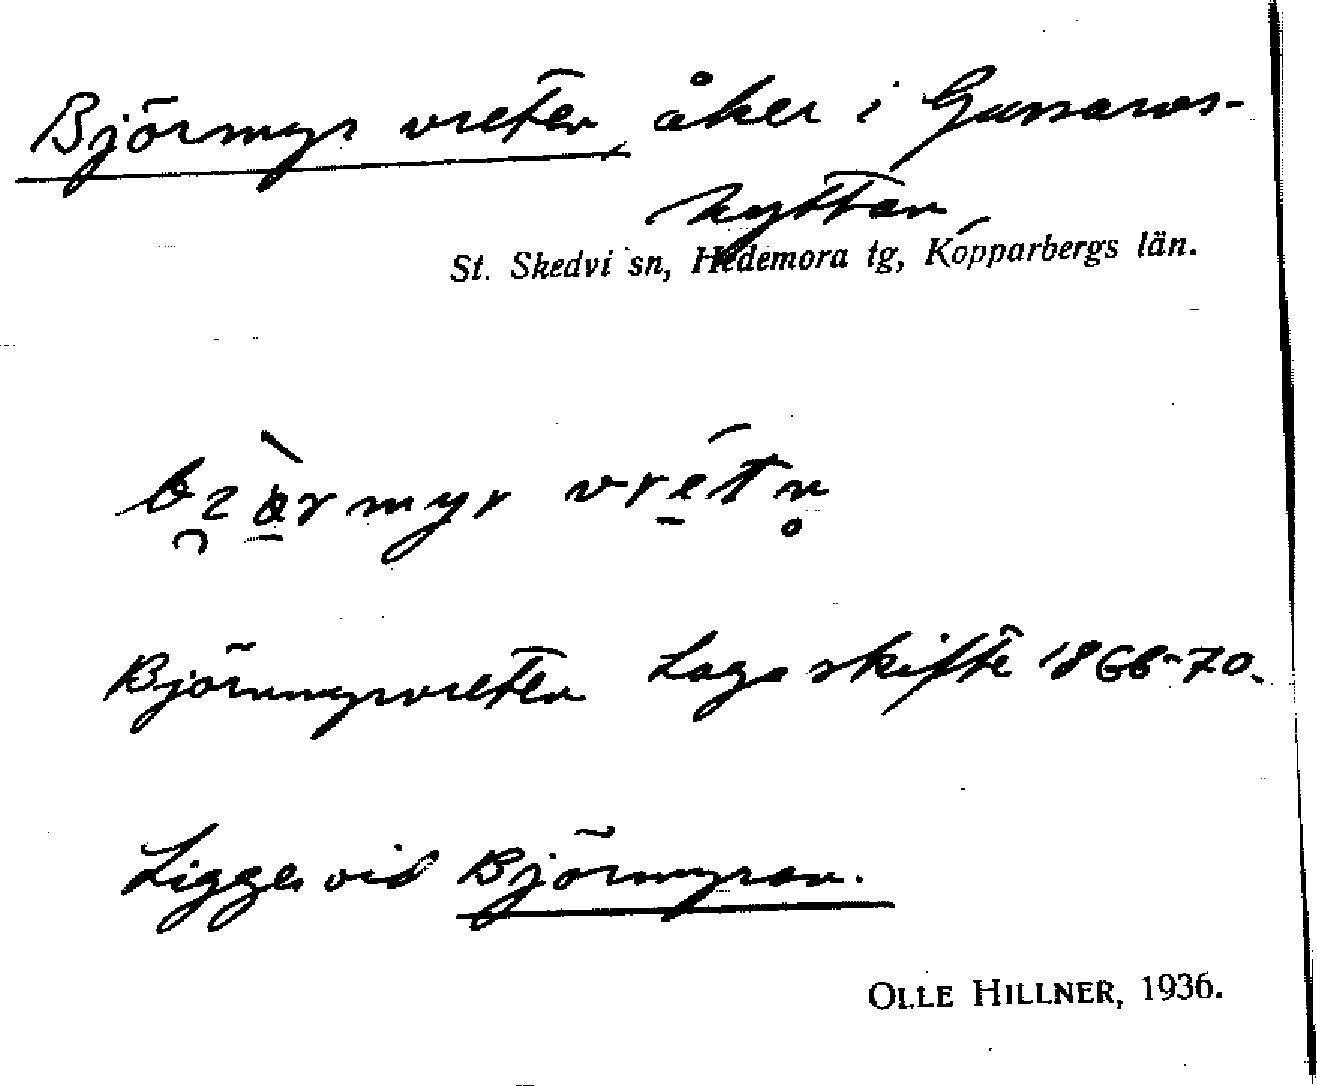 Björmyrvreten, åker i Gussarvs-
hyttan
St. Skedvi sn, Hedemora tg, Kopparbergs län.
Björnmyrvreten Laga skifte 1866-70.
Ligger vid Björmyran.
OLLE HILLNER, 1936.